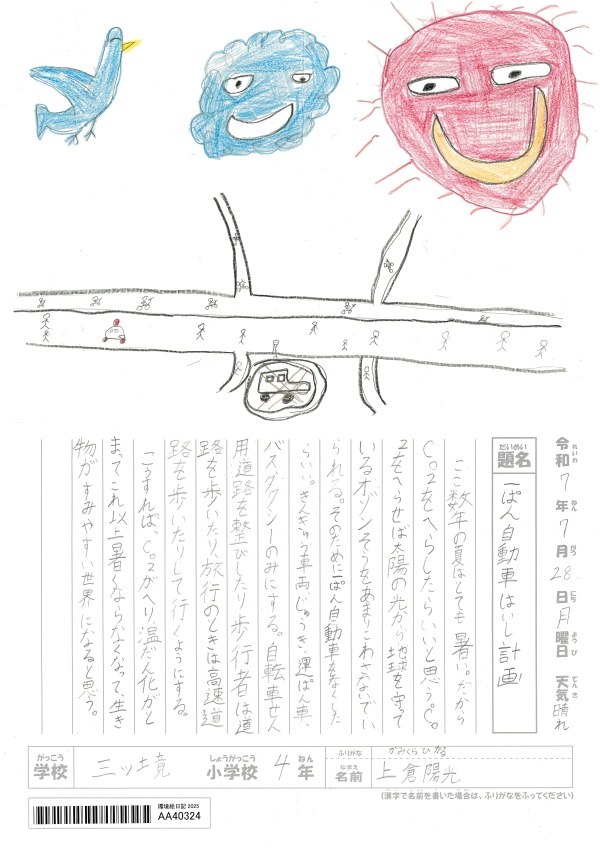 令和7年7月28日月曜日 天気 晴れ
れいわ ねん がつ にち ようび てんき
だいめい
題名 一ぱん自動車はいし計画
ここ数年の夏はとても暑い。だから
CO2をへらしたらいいと思う。CO
2をへらせば太陽の光から地球を守って
いるオゾンそうをあまりこわさないでい
られる。そのために一ぱん自動車をなくした
らいい。きんきゅう車両、じゅうき、運ぱん車、
バス、タクシーのみにする。自転車せん
用道路を整びしたり歩行者は道
路を歩いたり、旅行のときは高速道
路を歩いたりして行くようにする。
こうすれば、CO2がへり、温だん化がと
まってこれ以上暑くならなくなって、生き
物がすみやすい世界になると思う。
がっこう しょうがっこう ねん ふりがな かみくら ひかる
学校 三ツ境 小学校 4年 なまえ 名前 上倉陽光
(漢字で名前を書いた場合は、ふりがなをふってください)
環境絵日記 2025
AA40324